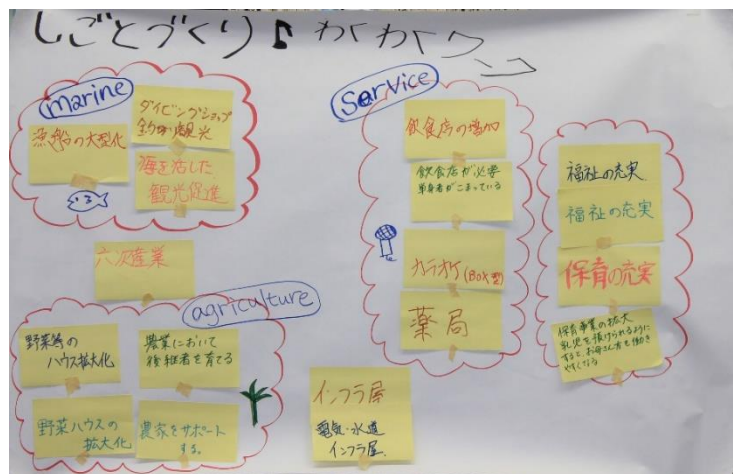 しごとづくり♪ わくわくワーク
marine
漁船の大型化
ダイビングショップ
釣り観光
海を活した
観光促進
六次産業
agriculture
野菜等の
ハウス拡大化
農業において
後継者を育てる
野菜ハウスの
拡大化
農家をサポート
する。
Service
飲食店の増加
飲食店が必要
単身者がこまっている
カラオケ(BOX型)
薬局
福祉の充実
福祉の充実
保育の充実
保育事業の拡大
乳児を預けられるように
すると、お母さん方も働き
やすくなる
インフラ屋
電気・水道
インフラ屋